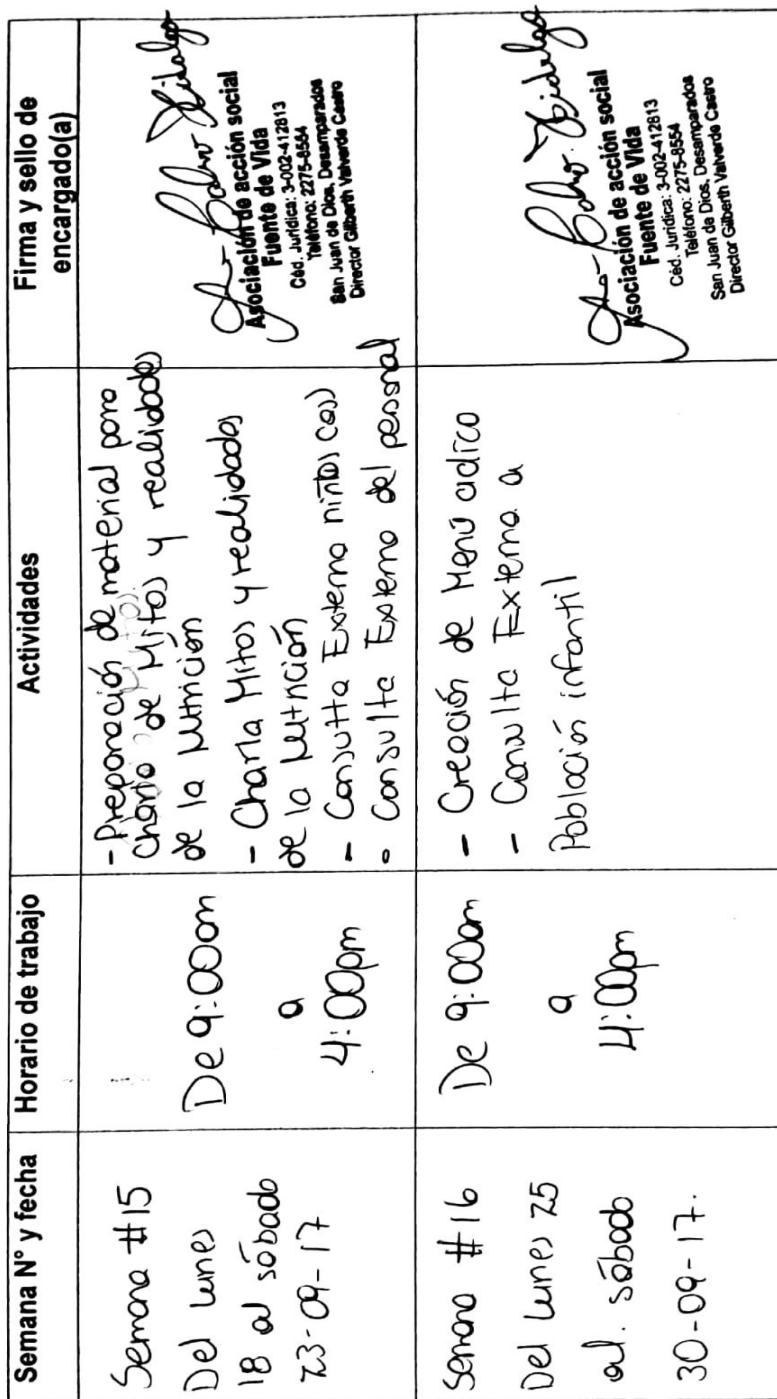 Semana N° y fecha
Horario de trabajo
Actividades
Firma y sello de
encargado(a)
Semana #15
Del lunes
18 al sábado
23-09-17
De 9:00am
a
4:00pm
- Preparación de material para
charla de Mitos y realidades
de la Nutrición
- Charla Mitos y realidades
de la Nutrición
- Consulta Externa niños (as)
- Consulta Externa del personal
Asociación de acción social
Fuente de Vida
Céd. Jurídica: 3-002-412813
Teléfono: 2275-8554
San Juan de Dios, Desamparados
Director Gilberth Valverde Castro
Semana #16
Del lunes 25
al. sábado
30-09-17.
De 9:00am
a
4:00pm
- Creación de Menú cíclico
- Consulta Externa a
Población infantil
Asociación de acción social
Fuente de Vida
Céd. Jurídica: 3-002-412813
Teléfono: 2275-8554
San Juan de Dios, Desamparados
Director Gilberth Valverde Castro